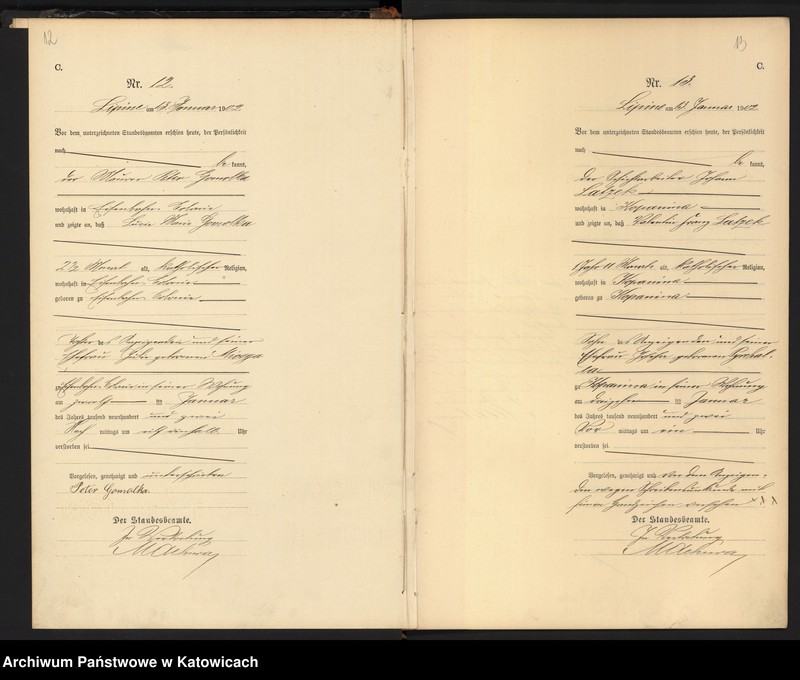 12
C.
Nr. 12.
Lipine am 13. Januar 1902.
Vor dem unterzeichneten Standesbeamten erschien heute, der Persönlichkeit
nach
be kannt,
der Maurer Peter Gomolka
wohnhaft in Eisenbahn-Colonie
und zeigte an, daß Lucie Marie Gomolka
2½ Monat alt, katholischer Religion,
wohnhaft in Eisenbahn-Colonie
geboren zu Eisenbahn-Colonie
Tochter des Anzeigenden und seiner
Ehefrau geborenen
zu Eisenbahn-Colonie in seiner Wohnung
am zwölften Januar
des Jahres tausend neunhundert und zwei
Nach mittags um Uhr
verstorben sei.
Vorgelesen, genehmigt und unterschrieben
Peter Gomolka.
Der Standesbeamte.
In Vertretung
13
C.
Nr. 13.
Lipine am 13. Januar 1902
Vor dem unterzeichneten Standesbeamten erschien heute, der Persönlichkeit
nach
be kannt,
der Schichtarbeiter Johann
Latzek
wohnhaft in Kopanina
und zeigte an, daß Valentin Franz Latzek
1 Jahr 11 Monate alt, katholischer Religion,
wohnhaft in Kopanina
geboren zu Kopanina
Sohn des Anzeigenden und seiner
Ehefrau geborenen
zu Kopanina in seiner Wohnung
am dreizehnten Januar
des Jahres tausend neunhundert und zwei
Vor mittags um ein Uhr
verstorben sei.
Vorgelesen, genehmigt und von dem Anzeigen-
den wegen Schreibensunkunde mit
seinem Handzeichen versehen XXX
Der Standesbeamte.
In Vertretung
Archiwum Państwowe w Katowicach